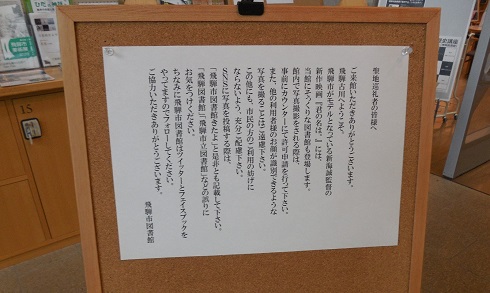 聖地巡礼者の皆様へ
ご来館いただきありがとうございます。
飛騨古川へようこそ。
飛騨市がモデルとなっている新海誠監督の
新作映画『君の名は。』には、
当館にそっくりな図書館も登場します。
館内で写真撮影をされる際は、
事前にカウンターにて許可申請を行って下さい。
また、他の利用者様のお顔が識別できるような
写真を撮ることはご遠慮下さい。
この他にも、市民の方のご利用の妨げに
ならないよう、充分ご配慮下さい。
SNSに写真を投稿する際は、
「飛騨市図書館きたよ」と是非とも記載して下さい。
「飛騨図書館」「飛騨市立図書館」などの誤りに
お気をつけください。
ちなみに飛騨市図書館はツイッターとフェイスブックを
やってますのでフォローしてください。
ご協力いただきありがとうございます。
飛騨市図書館
15